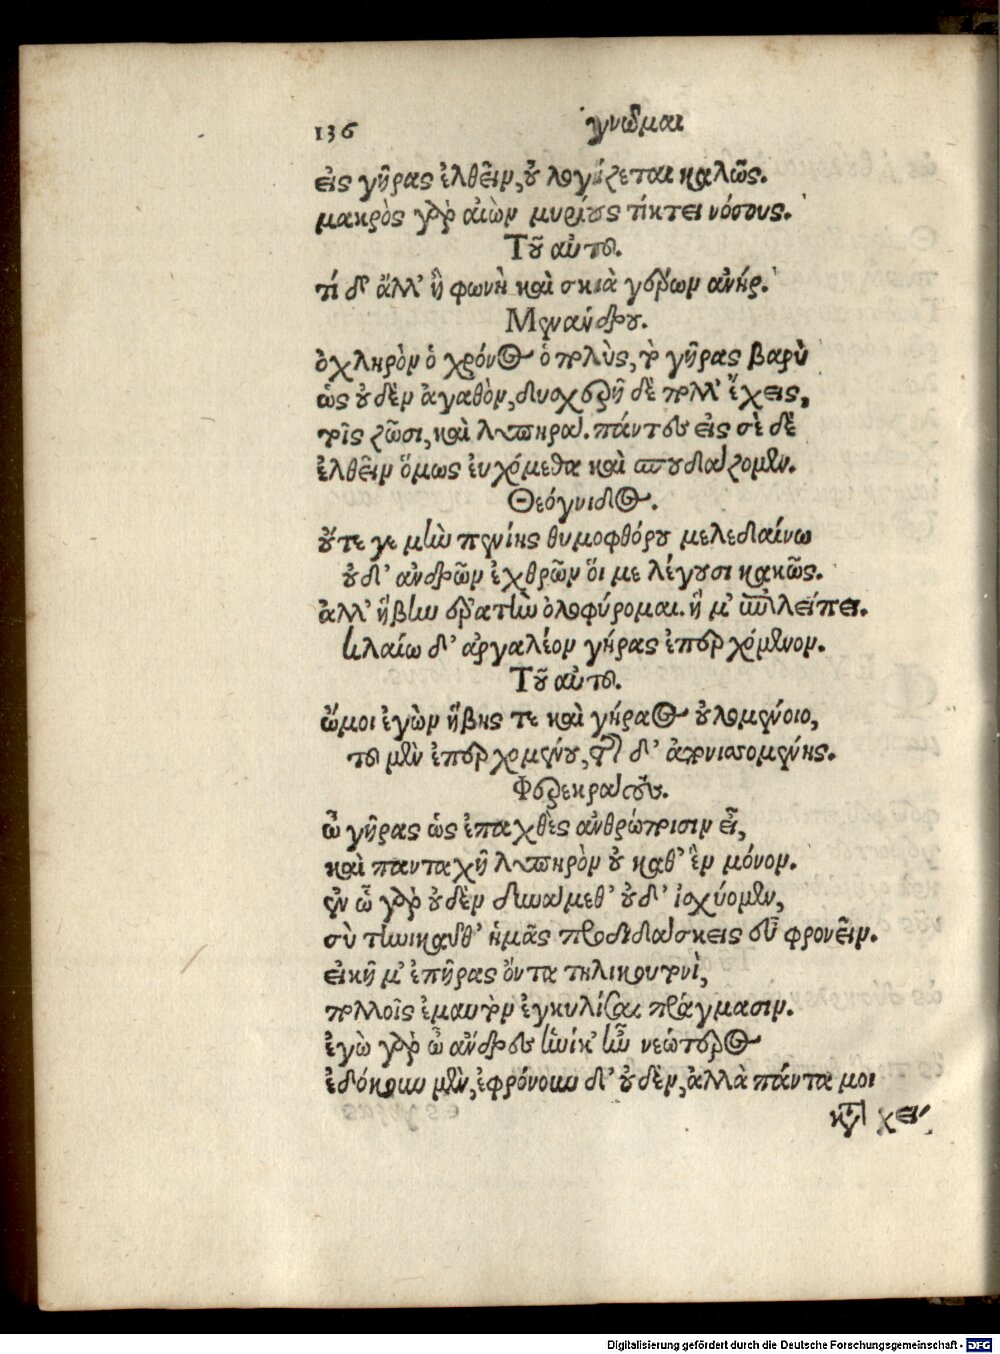 136 γνῶμαι
εἰς γῆρας ἐλθεῖν, οὐ λογίζεται καλῶς.
μακρὸς γὰρ αἰὼν μυρίους τίκτει νόσους.
Τοῦ αὐτοῦ.
τί δ' ἄλλ' ἢ φωνὴ καὶ σκιὰ γέρων ἀνήρ.
Μενάνδρου.
ὀχληρὸν ὁ χρόνος ὁ πολὺς, ὦ γῆρας βαρὺ
ὡς οὐδὲν ἀγαθὸν, δυσχερῆ δὲ πολλ' ἔχεις,
τοῖς ζῶσι, καὶ λυπηρά. πάντες εἰς σὲ δὲ
ἐλθεῖν ὅμως εὐχόμεθα καὶ σπουδάζομεν.
Θεόγνιδος.
οὔτε γε μὴν πενίης θυμοφθόρου μελεδαίνω
οὐδ' ἀνδρῶν ἐχθρῶν οἵ με λέγουσι κακῶς.
ἀλλ' ἥβην ἐρατὴν ὀλοφύρομαι. ἥ μ' ἐπιλείπει.
κλαίω δ' ἀργαλέον γήρας ἐπερχόμενον.
Τοῦ αὐτοῦ.
ὤμοι ἐγὼν ἥβης τε καὶ γήραος οὐλομένοιο,
τοῦ μὲν ἐπερχομένου, τῆς δ' ἀπονισομένης.
Φερεκράτους.
ὦ γῆρας ὡς ἐπαχθὲς ἀνθρώποισιν εἶ,
καὶ πανταχῆ λυπηρὸν οὐ καθ' ἓν μόνον.
ἐν ᾧ γὰρ οὐδὲν δυνάμεθ' οὐδ' ἰσχύομεν,
σὺ τηνικαῦθ' ἡμᾶς προδιδάσκεις εὖ φρονεῖν.
εἰκῆ μ' ἐπῆρας ὄντα τηλικουτονὶ,
πολλοῖς ἐμαυτὸν ἐγκυλίσαι πράγμασιν.
ἐγὼ γὰρ ὦ ἄνδρες ἡνίκ' ἦν νεώτερος
ἐδόκουν μὲν, ἐφρόνουν δ' οὐδὲν, ἀλλὰ πάντα μοι
κατὰ χεῖ
Digitalisierung gefördert durch die Deutsche Forschungsgemeinschaft - DFG